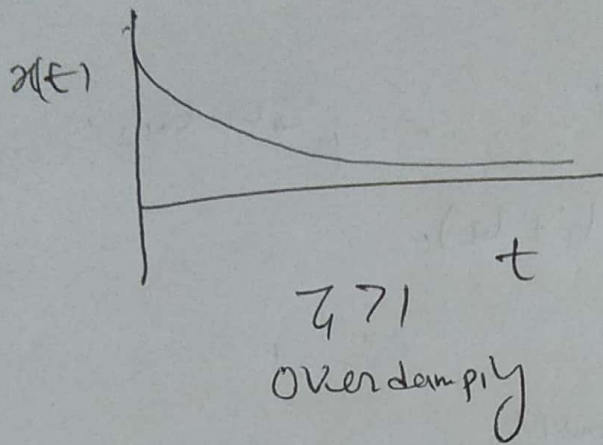 x(t)
t
ζ>1
Overdamping